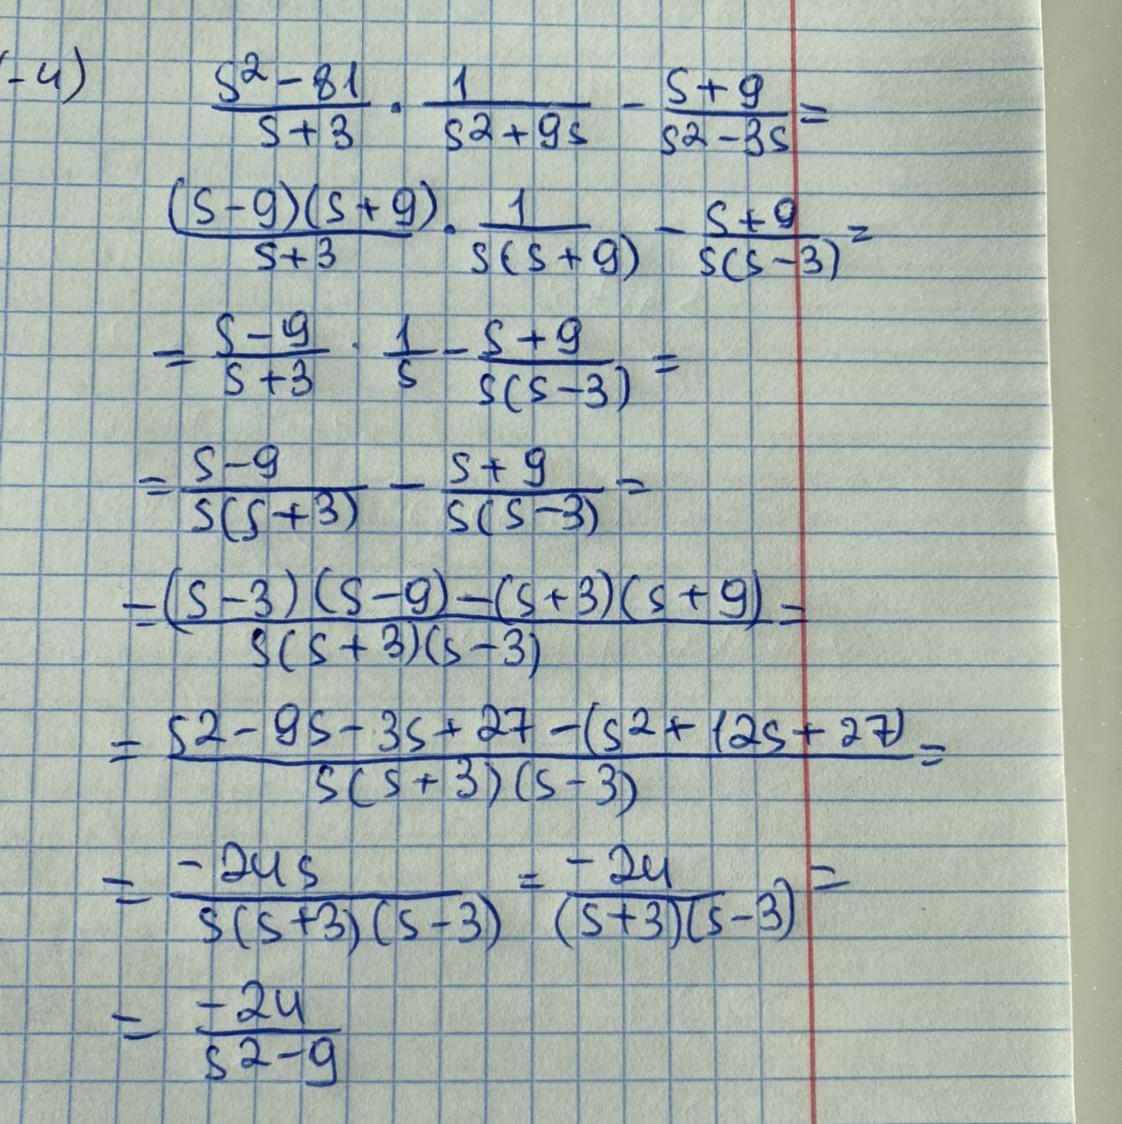 -4) \frac{s^2-81}{s+3} \cdot \frac{1}{s2+9s} - \frac{s+9}{s2-3s} =
\frac{(s-9)(s+9)}{s+3} \cdot \frac{1}{s(s+9)} - \frac{s+9}{s(s-3)} =
= \frac{s-9}{s+3} \cdot \frac{1}{s} - \frac{s+9}{s(s-3)} =
= \frac{s-9}{s(s+3)} - \frac{s+9}{s(s-3)} =
= \frac{(s-3)(s-9)-(s+3)(s+9)}{s(s+3)(s-3)} =
= \frac{s2-9s-3s+27-(s2+12s+27)}{s(s+3)(s-3)} =
= \frac{-24s}{s(s+3)(s-3)} = \frac{-24}{(s+3)(s-3)} =
= \frac{-24}{s2-9}